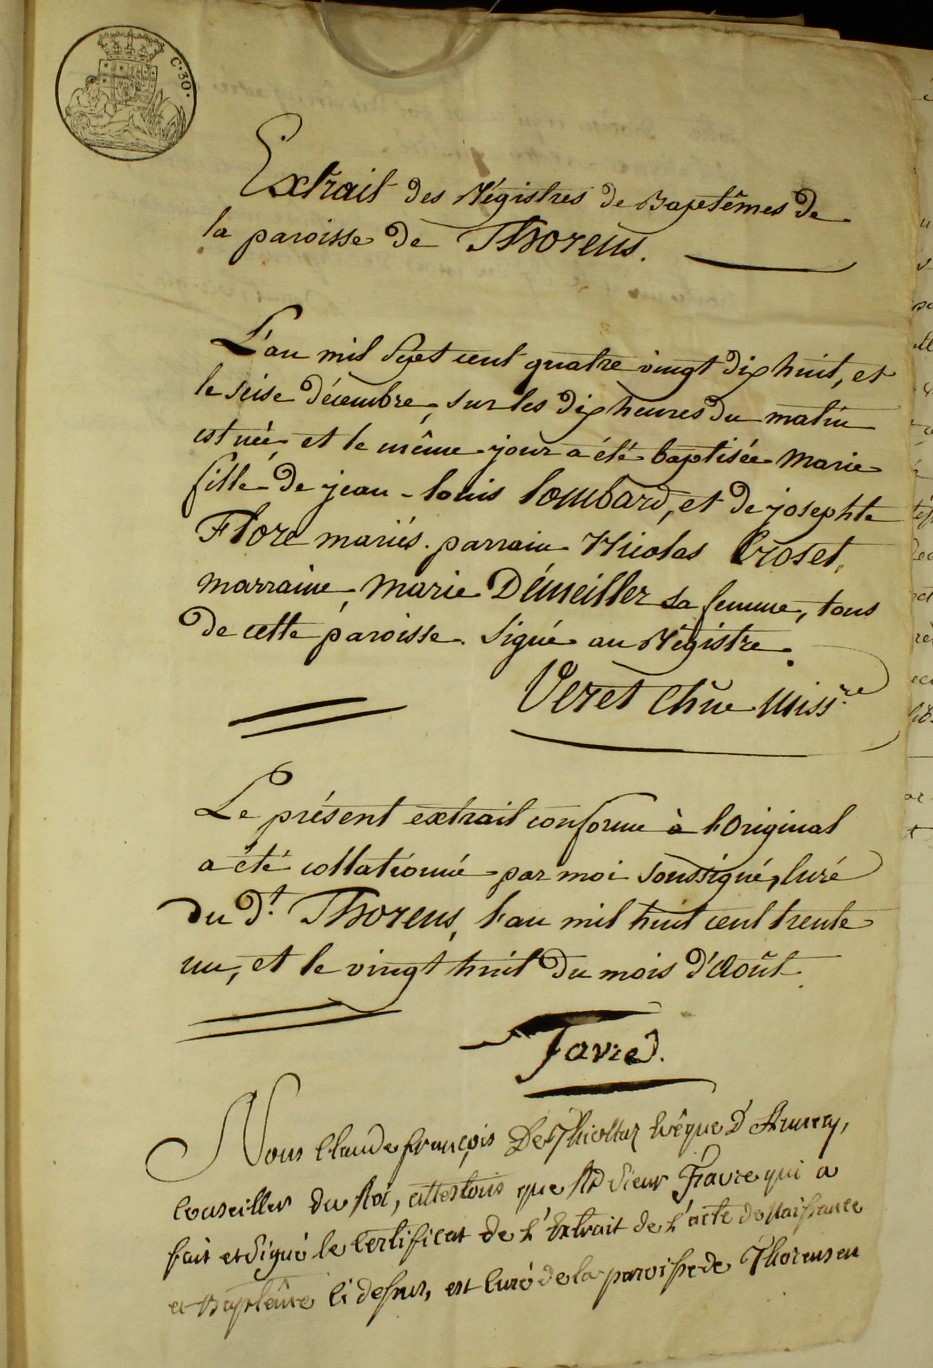 C. 30.
Extrait des Régistres de Baptêmes de
la paroisse de Thorens.
L'an mil sept cent quatre vingt dix huit, et
le seise décembre, sur les dix heures du matin
est née et le même jour a été baptisée Marie
fille de jean-louis Lombard, et de josephte
Flore mariés. parrain Nicolas Croset,
marraine, Marie Démeiller sa femme, tous
de cette paroisse. Signé au Régistre.
Veret Chne Missre
Le présent extrait conforme à l'Original
a été collationné par moi soussigné, Curé
du dt. Thorens, l'an mil huit cent trente
un, et le vingt huit du mois d'Août.
Favre.
Nous Claude françois De Thiollaz Evêque D'Annecy,
Conseiller du Roi, attestons que Rd Sieur Favre qui a
fait et Signé le Certificat de L'Extrait de L'acte de Naissance
et Baptême Ci dessus, est Curé de la paroisse de Thorens en